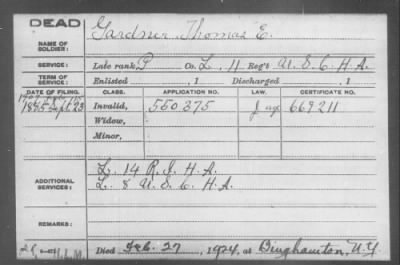 DEAD
Gardner, Thomas E.
NAME OF
SOLDIER:
SERVICE:
Late rank, P Co. L, 11 Reg't U.S.C.H.A.
TERM OF
SERVICE:
Enlisted , 1 Discharged , 1
DATE OF FILING. CLASS. APPLICATION NO. LAW. CERTIFICATE NO.
1885 Sept 23 Invalid, 550375 669211
Widow,
Minor,
ADDITIONAL
SERVICES:
L. 14 R.I.H.A.
L. 8 U.S.C. H.A.
REMARKS:
Died Feb. 27, 1924, at Binghamton, N.Y.